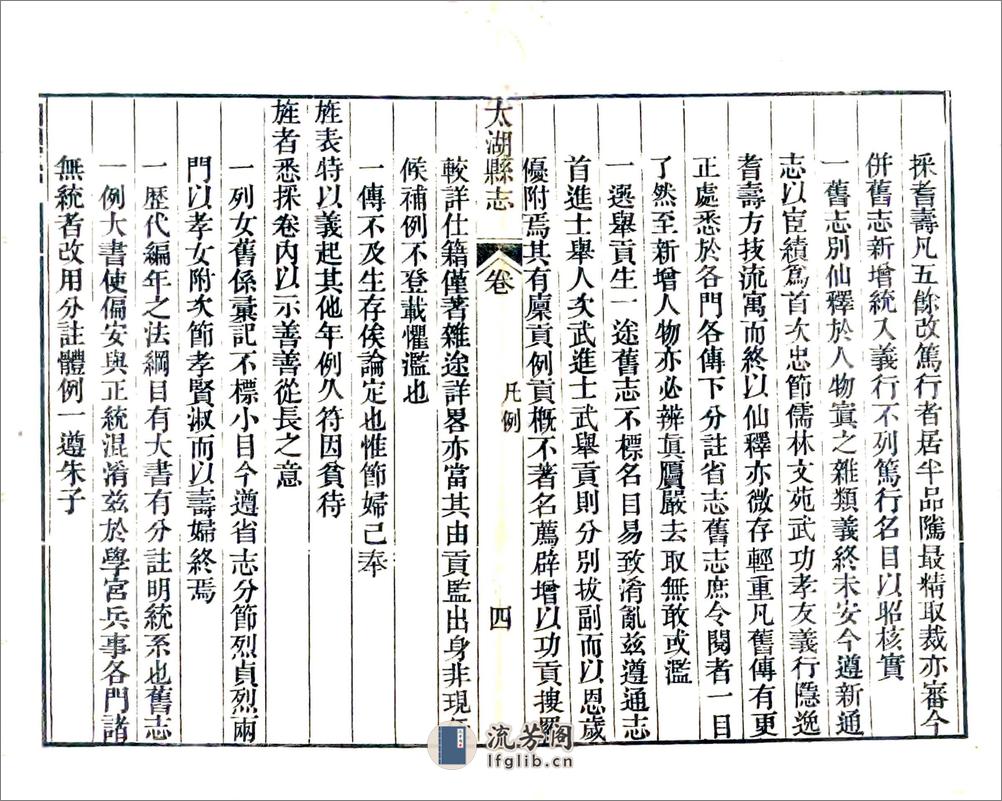 採耆壽凡五餘改篤行者居半品隲最精取裁亦審今
併舊志新增統入義行不列篤行名目以昭核實
一舊志別仙釋於人物寘之雜類義終未安今遵新通
志以宦績爲首次忠節儒林文苑武功孝友義行隱逸
耆壽方技流寓而終以仙釋亦微存輕重凡舊傳有更
正處悉於各門各傳下分註省志舊志庶令閱者一目
了然至新增人物亦必辨眞贗嚴去取無敢或濫
一選舉貢生一途舊志不標名目易致淆亂兹遵通志
首進士舉人次武進士武舉貢則分別拔副而以恩歲
優附焉其有廩貢例貢概不著名薦辟增以功貢搜羅
太湖縣志
卷
凡例
四
較詳仕籍僅著雜途詳畧亦當其由貢監出身非現任
候補例不登載懼濫也
一傳不及生存俟論定也惟節婦已奉
旌表特以義起其他年例久符因貧待
旌者悉採卷內以示善善從長之意
一列女舊係彙記不標小目今遵省志分節烈貞烈兩
門以孝女附次節孝賢淑而以壽婦終焉
一歷代編年之法綱目有大書有分註明統系也舊志
一例大書使偏安與正統混淆兹於學宮兵事各門諸
無統者改用分註體例一遵朱子
流芳阁
lfglib.cn